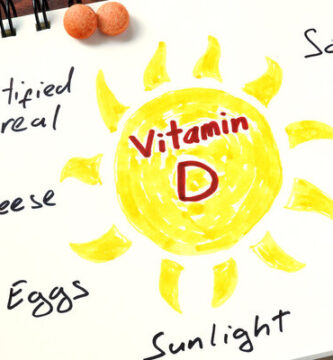 tified
real
Vitamin
D
eese
Eggs
Sunlight